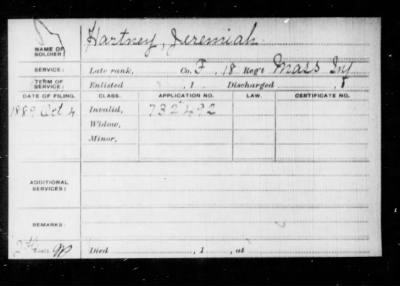 NAME OF SOLDIER: Hartney, Jeremiah
SERVICE: Late rank, Co. F, 18 Reg't Mass Inf
TERM OF SERVICE: Enlisted , 1 Discharged , 1
DATE OF FILING. CLASS. APPLICATION NO. LAW. CERTIFICATE NO.
1889 Oct 4 Invalid, 732492
Widow,
Minor,
ADDITIONAL SERVICES:
REMARKS:
Died , 1 , at